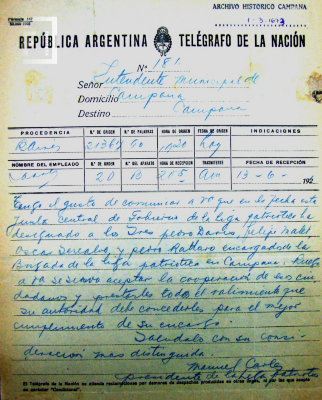 ARCHIVO HISTORICO CAMPANA
REPÚBLICA ARGENTINA TELÉGRAFO DE LA NACIÓN
N.º 181
Señor Intendente Municipal de
Domicilio Campana
Destino Campana
PROCEDENCIA N.º DE ORIGEN N.º DE PALABRAS HORA DE ORIGEN FECHA DE ORIGEN INDICACIONES
BAires 21367 Hoy
NOMBRE DEL EMPLEADO N.º DE ORDEN N.º DEL APARATO HORA DE RECEPCIÓN TRASMITENTE FECHA DE RECEPCIÓN
20 13 13-6- 192
Tengo el gusto de comunicar a Vd que en la fecha esta
Junta Central de Gobierno de la liga patriotica ha
designado a los Sres pedro Felipe
Oscar y pedro Rattaro encargados de la
Brigada de la liga patriotica en Campana Ruego
a Vd se sirva aceptar la cooperacion de esos ciu
dadanos y prestarles todo el valimiento que
su autoridad debe concederles para el mejor
cumplimiento de su encargo
Saludalo con su consi
deracion mas distinguida
Manuel Carles
presidente de la liga patriotica
El Telégrafo de la Nación no admite reclamaciones por